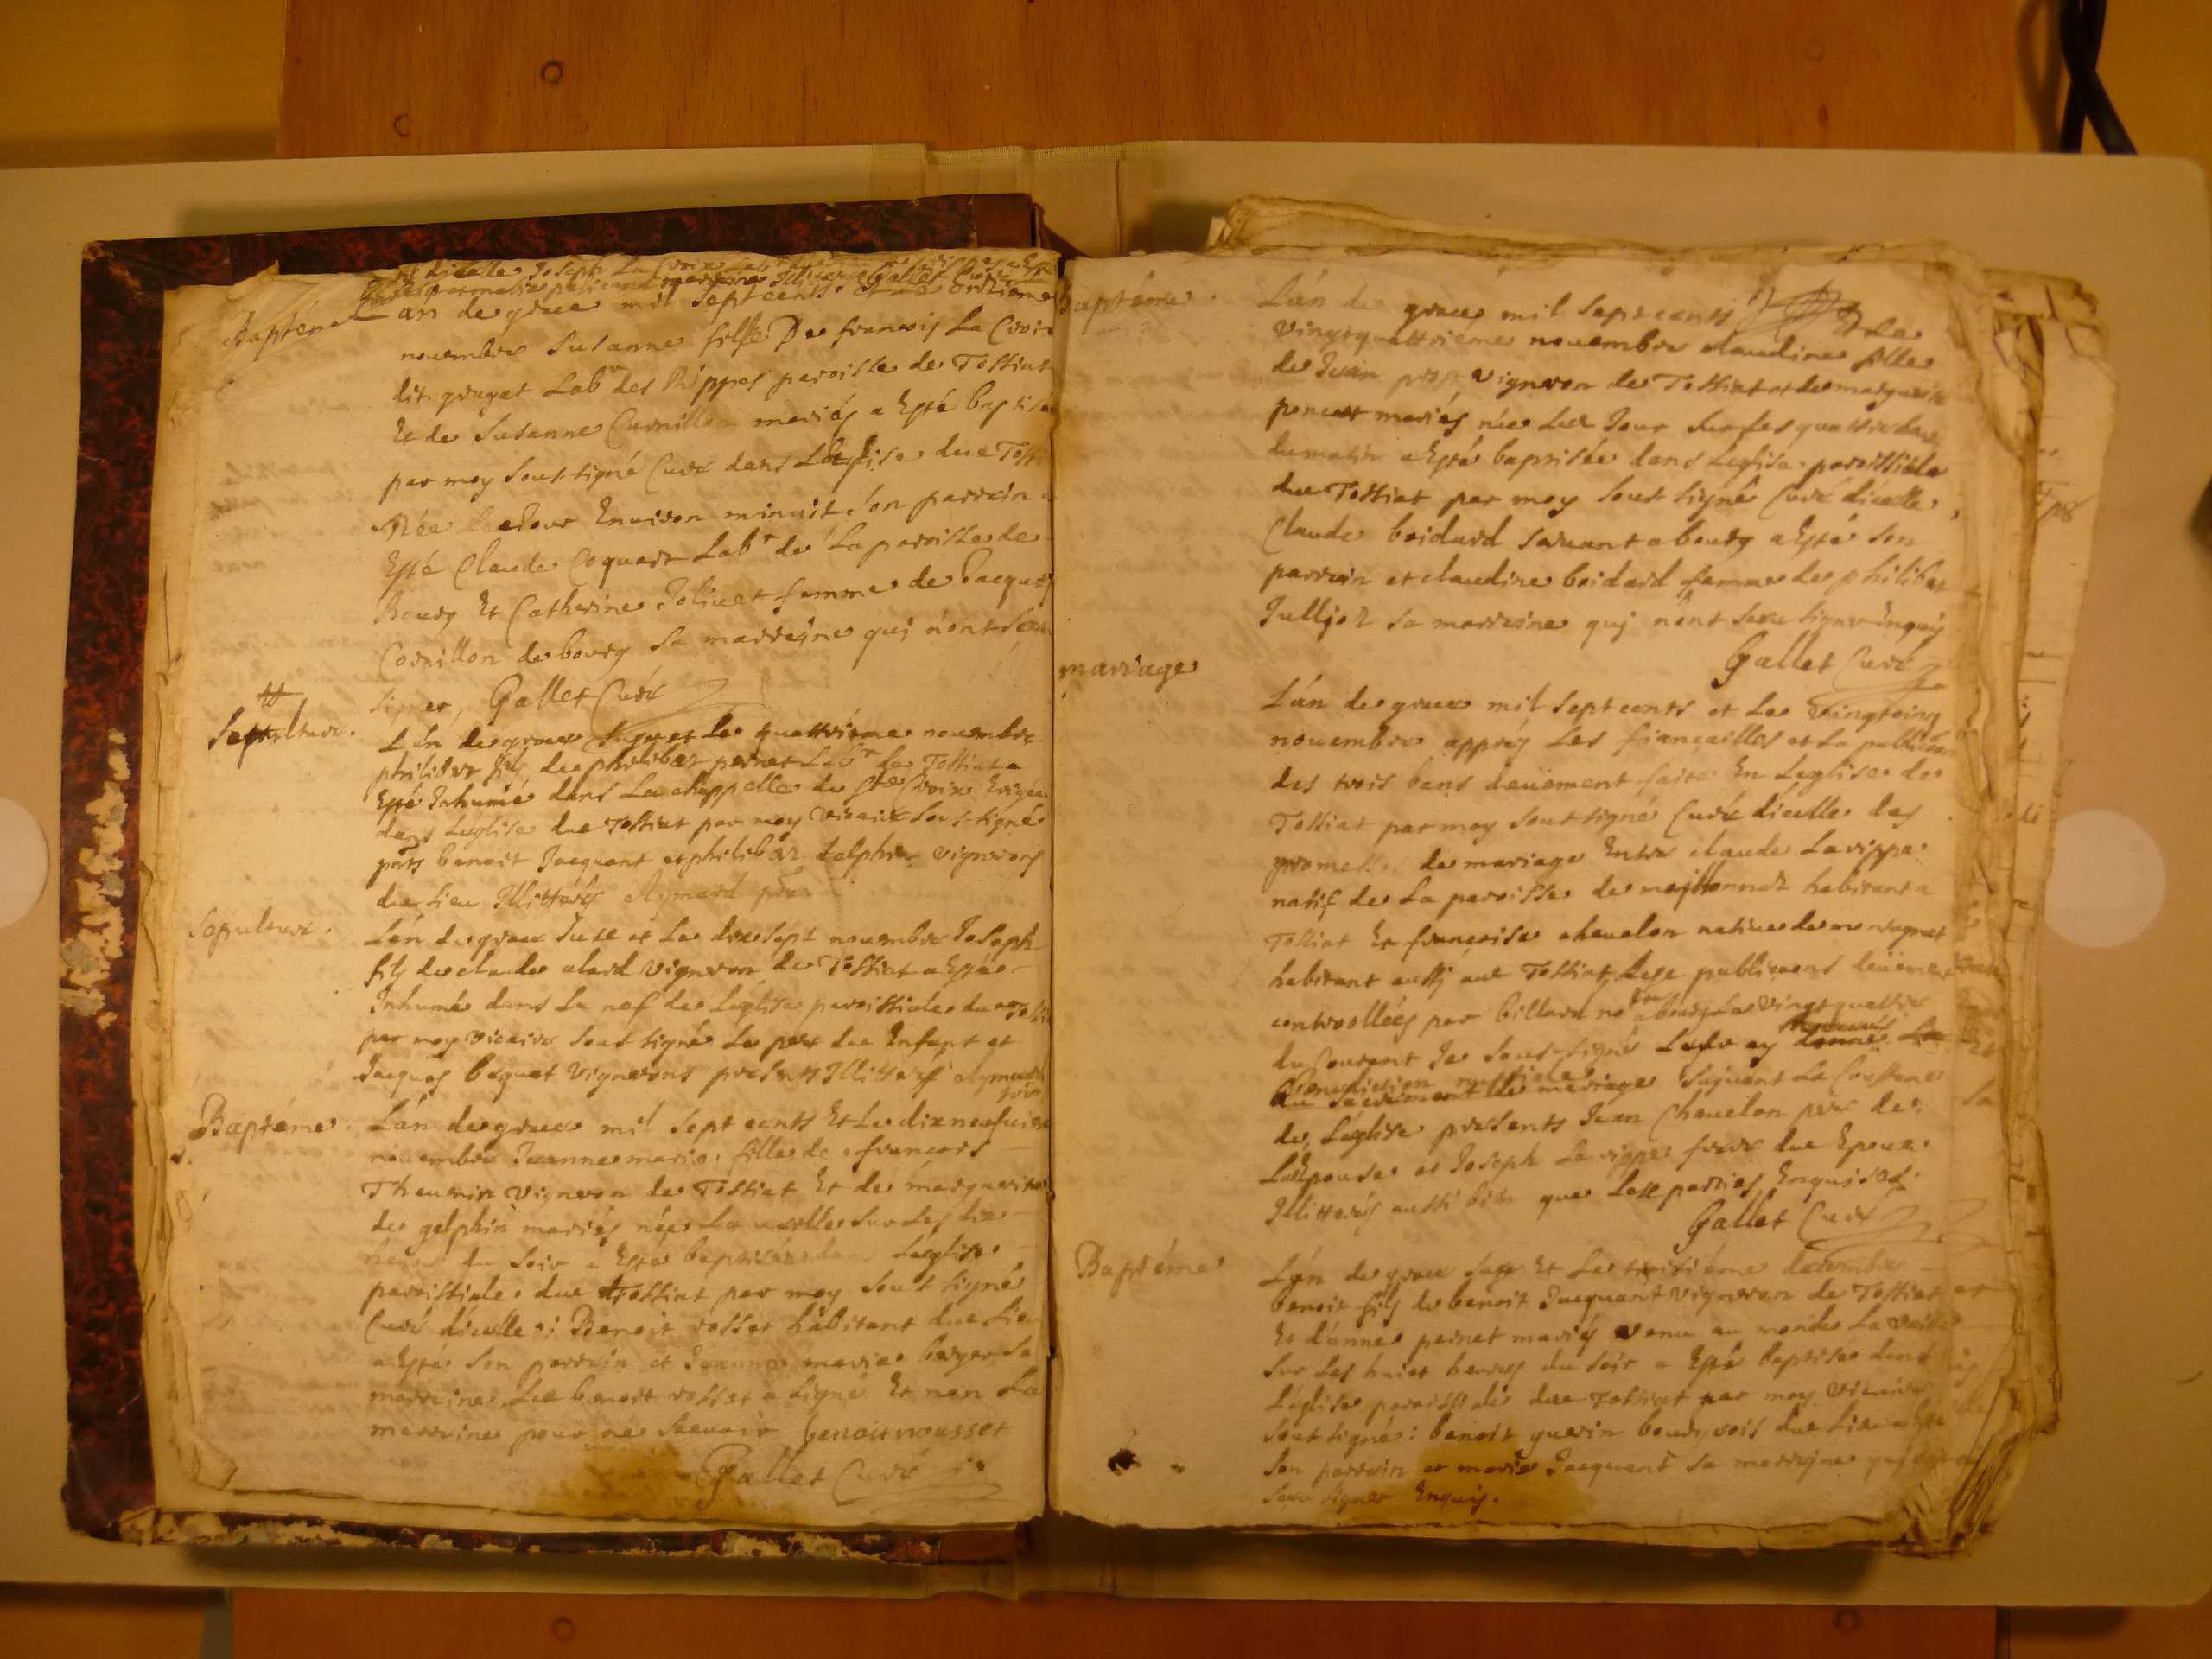 dicelle Joseph La Croix
Illiterés Gallet Curé
Baptéme
an de grace mil sept cents et le onzieme
novembre Susanne fille De francois La Croix
dit gruyet Labr des Rippes paroisse de Tossiat
Et de Susanne Curnillon mariés a Esté baptisee
par moy sous signé Curé dans Léglise due Tossi
Née Jour Environ minuit son parrain a
Esté Claude Coquart Labr de La paroisse de
Bourg Et Catherine Jolivet femme de Jacques
Cornillon de bourg sa marreyne quj nont sceu
signer, Gallet Curé
Sepulture.
Lán de grace et Le quattriéme novembre
philibar fils de philibar pernet Labr de Tossiat a
Esté Inhumé dans La chappelle de ste Croix Erigée
dans Leglise due Tossiat par moy vicaire sous-signé
pnts benoit Jacquant et philibar dalphin vignerons
due Lieu Illitterés Aymard
Sepulture.
Lán de grace Suse et Le dix sept novembre Joseph
fils de claude alard vigneron de Tossiat a Esté
Inhumé dans La nef de Léglise paroissiale due Tossi
par moy vicaire sous signé Le pere due Enfant et
Jacques boquet vignerons presents Illitterés Aymard
Baptéme.
Lán de grace mil sept cents Et Le dix neufuieme
novembre Jeanne marie fille de francois
Theurin vigneron de Tossiat Et de marguerite
de galphin mariés née La veille sur Les dix
heures du soir a Esté baptisée dans Léglise
parissiale due Tossiat par moy sous signé
Curé dicelle: Benoit rosset habitant due Lieu
a Esté son parrain et Jeanne marie berger sa
marraine Lee benoit rosset a signé Et non La
marraine pour ne scavoir benoit rousset
Gallet Curé
Baptéme.
Lán de grace mil sept cents Le
vingt quattriéme novembre claudine fille
de Jean vigneron de Tossiat et de marguerite
poncet mariés née Lee Jour sur Les quattre heures
du matin a Esté baptisée dans Leglise paroissiale
due Tossiat par moy sous signé Curé dicelle,
Claude boidard servant a bourg a Esté son
parrain et claudine boidard femme de philibar
Julljoz sa marreine quj nónt sceu signer Enquis
Gallet Curé
mariage
Lán de grace mil sept cents et Le vingtcinq
novembre apprés Les fiançailles et La publicaon
des trois bans deüement faite En Leglise de
Tossiat par moy sous signé Curé dicelle des
promess de mariage Entre claude Lavippe
natif de La paroisse de habitant a
Tossiat Et francoise chevelon native de montagnat
habitant aussj aue Tossiat Lese publicaons deüement
controollées par billard nore a bourg Le vingt quattre
du Courant Je sous-signé Leur ay donné La
Benediction nuptiale
du sacrement de mariage sujvant La Coustume
de Léglise presents Jean Chevelon pere de
Lee Epouse et Joseph Lavippe frere due Epoux
Illitterés aussi bien que Lese parties Enquises.
Gallet Curé
Baptéme
Lán de grace suse Et Le troisiéme decembre
benoit fils de benoit Jacquant vigneron de Tossiat
Et dánne pernet mariés venu au monde La veille
sur Les huict heures du soir a Esté baptisé dans
Léglise paroissiale due Tossiat par moy vicaire
sous signé: benoit guerin bourgeois due Lieu a Esté
son parrain et marie Jacquant sa marrejne quj
sceu signer Enquis.